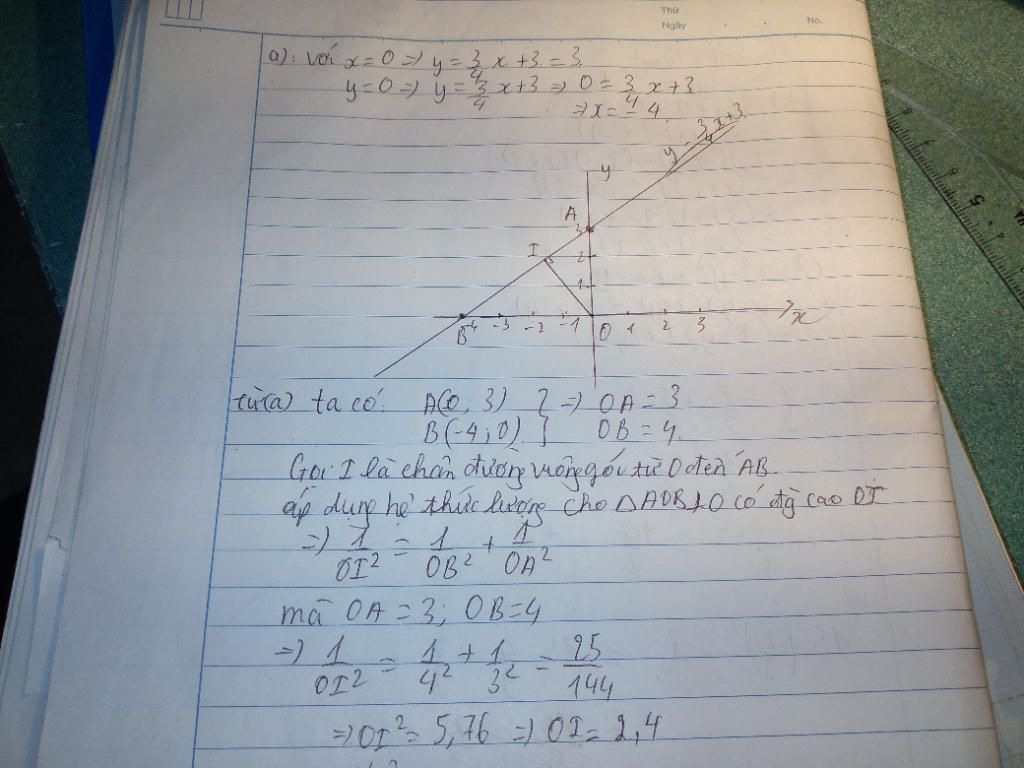 Thứ
Ngày . . No.
a): Với x = 0 => y = 3/4 x + 3 = 3
y = 0 => y = 3/4 x + 3 => 0 = 3/4 x + 3
=> x = - 4
y = 3/4 x + 3
y
A
3
I
2
1
B -4 -3 -2 -1 O 1 2 3 x
từ (a) ta có: A(0; 3) } => OA = 3
B(-4; 0) } OB = 4
Gọi I là chân đường vuông góc từ O đến AB.
áp dụng hệ thức lượng cho △AOB ⊥ O có đg cao OI
=> 1/OI² = 1/OB² + 1/OA²
mà OA = 3; OB = 4
=> 1/OI² = 1/4² + 1/3² = 25/144
=> OI² = 5,76 => OI = 2,4